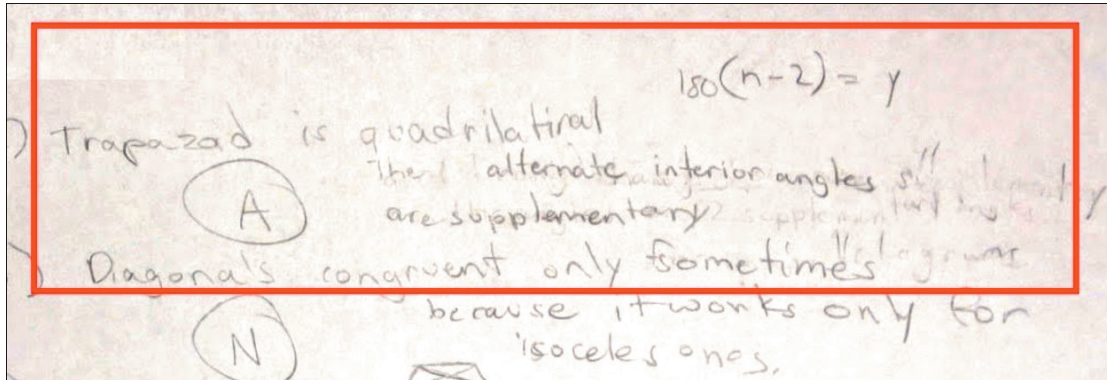 180(n-2) = y
) Trapazad is quadrilatiral
The alternate interior angles
A are supplementary
) Diagonals congruent only sometimes
because it works only for
N isoceles ones.